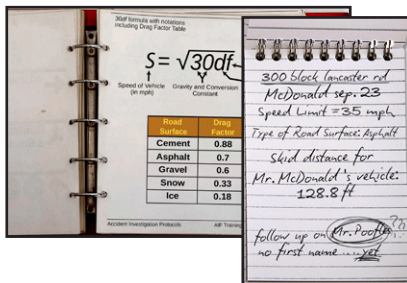 30df formula with notations
including Drag Factor Table
S = √30df
Speed of Vehicle
(in mph)
Gravity and Conversion
Constant
Road Surface Drag Factor
Cement 0.88
Asphalt 0.7
Gravel 0.6
Snow 0.33
Ice 0.18
Accident Investigation Protocols AIF Training
300 block lancaster rd
McDonald sep. 23
Speed Limit = 35 mph
Type of Road Surface: Asphalt
Skid distance for
Mr. McDonald's vehicle:
128.8 ft
follow up on Mr. Poofles ??
no first name....yet